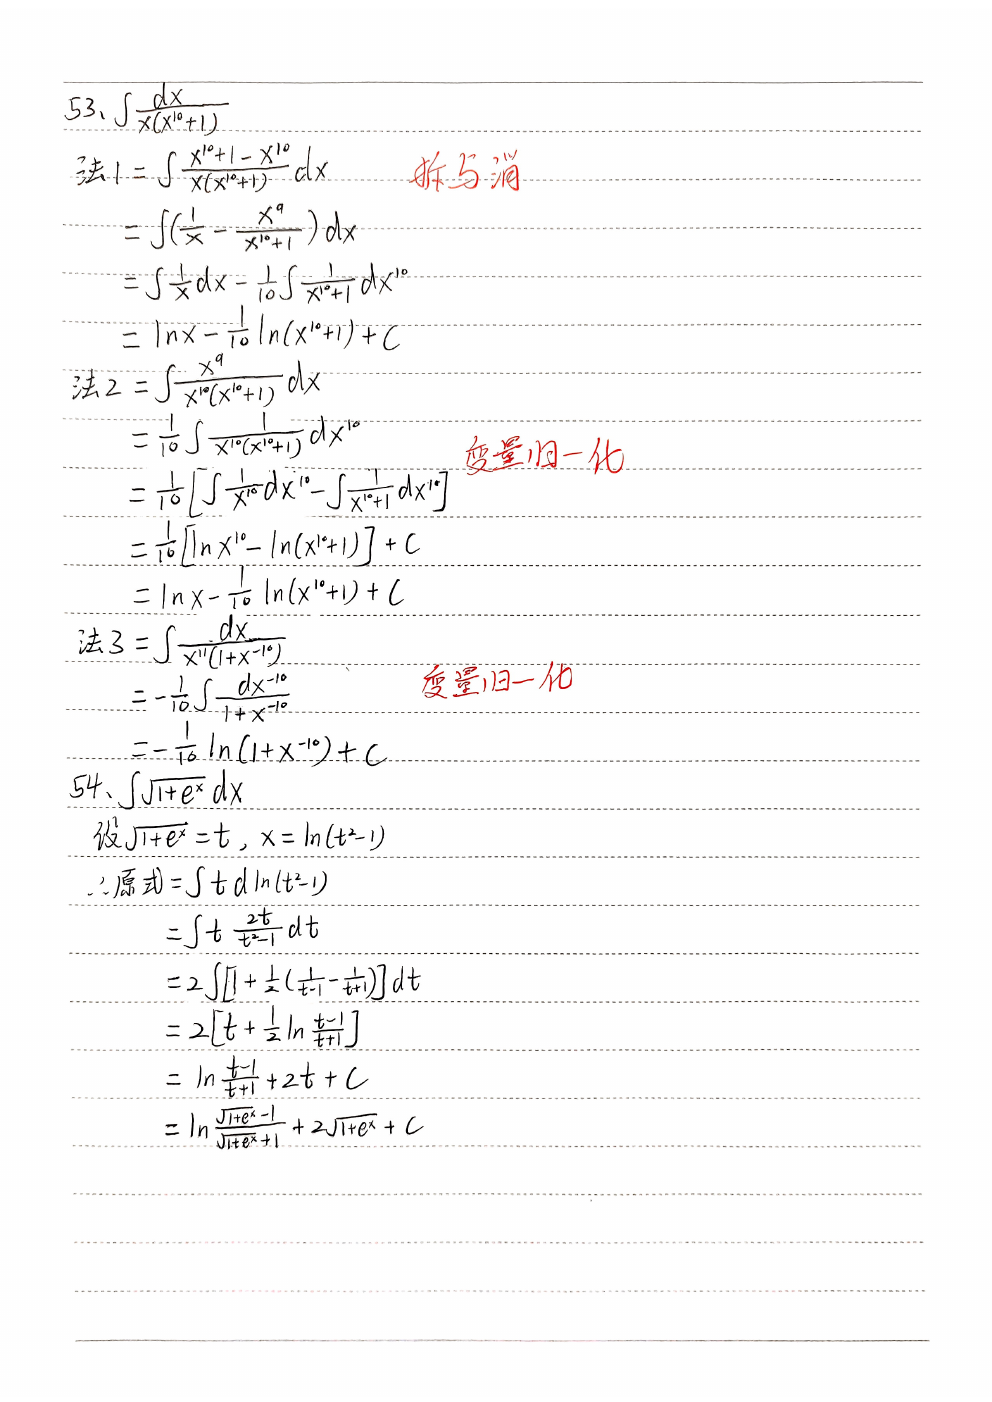 53、∫ dx / x(x¹⁰+1)
法1 = ∫ (x¹⁰+1-x¹⁰) / x(x¹⁰+1) dx 拆与消
= ∫(1/x - x⁹/(x¹⁰+1)) dx
= ∫ 1/x dx - 1/10 ∫ 1/(x¹⁰+1) dx¹⁰
= lnx - 1/10 ln(x¹⁰+1) + C
法2 = ∫ x⁹ / x¹⁰(x¹⁰+1) dx
= 1/10 ∫ 1 / x¹⁰(x¹⁰+1) dx¹⁰
变量归一化
= 1/10 [∫ 1/x¹⁰ dx¹⁰ - ∫ 1/(x¹⁰+1) dx¹⁰]
= 1/10 [lnx¹⁰ - ln(x¹⁰+1)] + C
= lnx - 1/10 ln(x¹⁰+1) + C
法3 = ∫ dx / x¹¹(1+x⁻¹⁰)
= -1/10 ∫ dx⁻¹⁰ / (1+x⁻¹⁰) 变量归一化
= -1/10 ln(1+x⁻¹⁰) + C
54、∫√(1+eˣ) dx
设√(1+eˣ) = t, x = ln(t²-1)
∴原式 = ∫ t d ln(t²-1)
= ∫ t 2t/(t²-1) dt
= 2∫[1 + 1/2 (1/(t-1) - 1/(t+1))] dt
= 2[t + 1/2 ln (t-1)/(t+1)]
= ln (t-1)/(t+1) + 2t + C
= ln (√(1+eˣ)-1)/(√(1+eˣ)+1) + 2√(1+eˣ) + C